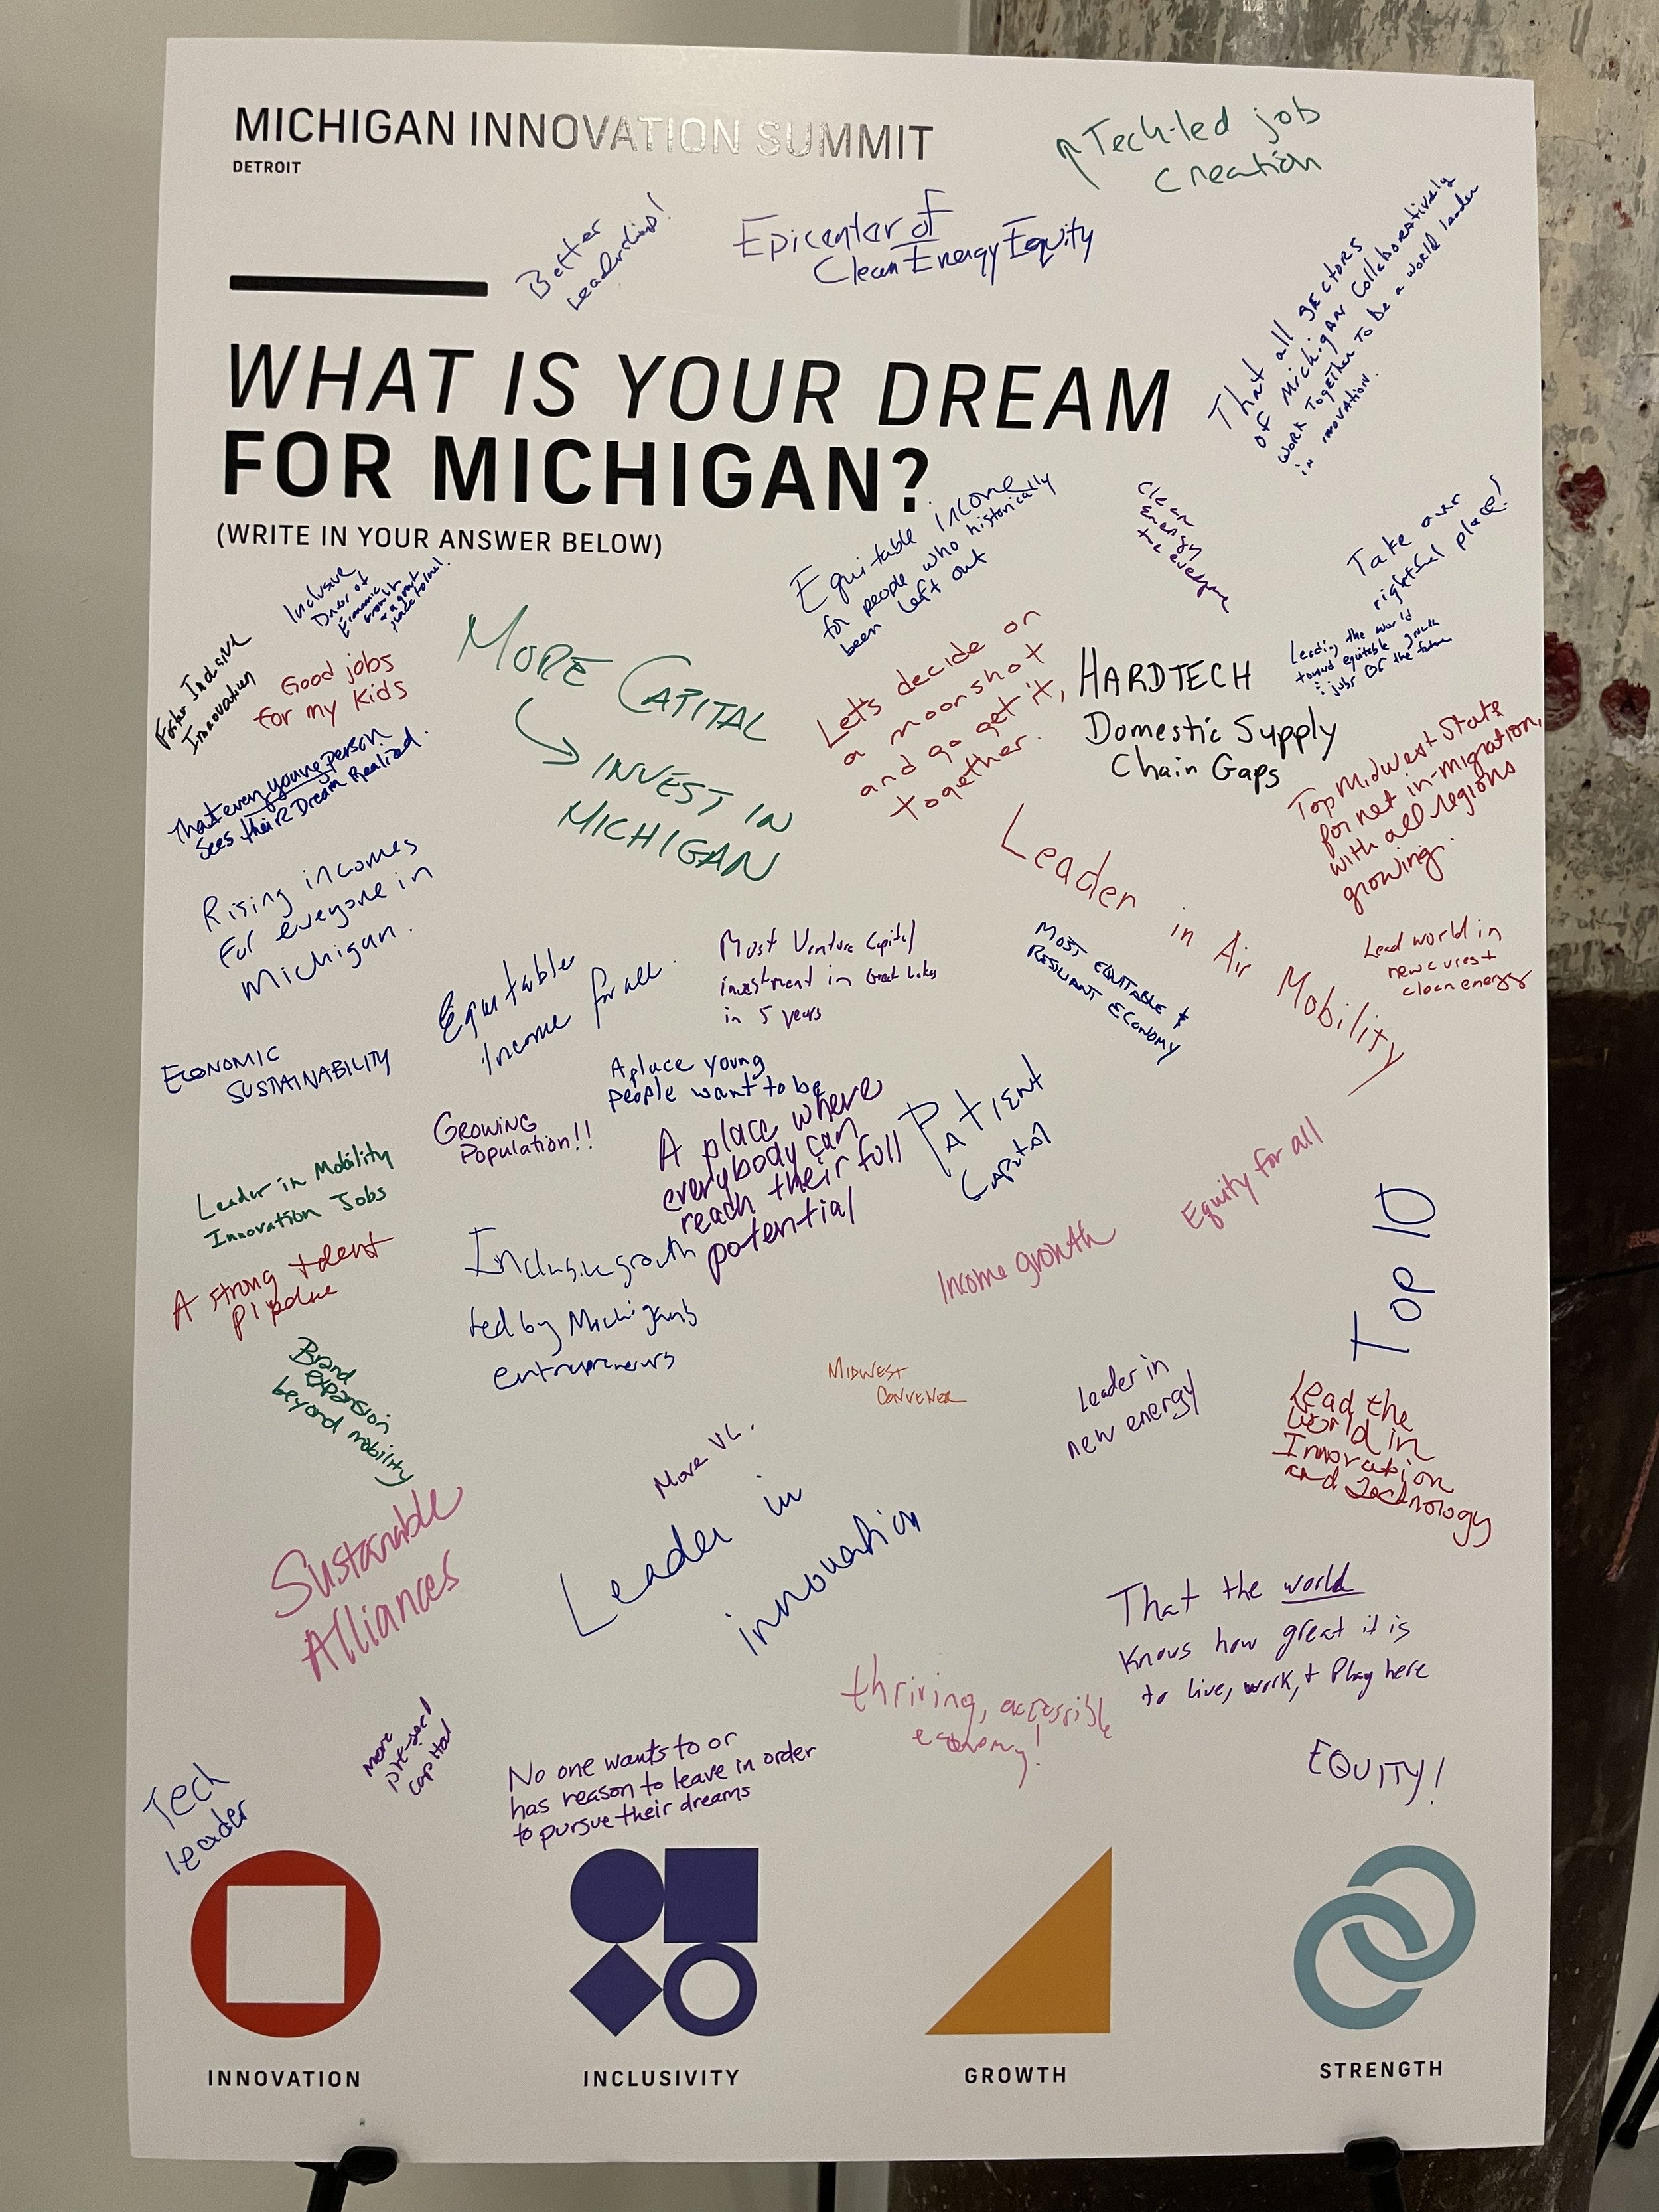 MICHIGAN INNOVATION SUMMIT
DETROIT
↑Tech-led job
creation
Better
Leadership!
Epicenter of
Clean Energy Equity
That all sectors
of Michigan Collaboratively
work together to be a world leader
in innovation.
WHAT IS YOUR DREAM
FOR MICHIGAN?
(WRITE IN YOUR ANSWER BELOW)
Equitable income
for people who historically
been left out
Clean
energy
for everyone
Take over
rightful place!
Inclusive
Economic
growth
Foster Inclusive
Innovation
Good jobs
for my kids
MORE CAPITAL
→ INVEST IN
MICHIGAN
Let's decide on
a moonshot
and go get it,
together.
HARDTECH
Domestic Supply
Chain Gaps
Leading the world
toward equitable growth
jobs OF the future
Top Midwest State
for net in-migration,
with all regions
growing.
That every young person
Sees their Dream Realized.
Rising incomes
for everyone in
Michigan.
Leader in Air Mobility
Equitable
Income for all.
Most Venture Capital
investment in Great Lakes
in 5 years
MOST EQUITABLE &
RESILIANT ECONOMY
Lead world in
clean energy
ECONOMIC
SUSTAINABILITY
A place young
people want to be
GROWING
Population!!
A place where
everybody can
reach their full
potential
PATIENT
CAPITAL
Leader in Mobility
Innovation Jobs
Equity for all
Income growth
TOP 10
A strong talent
pipeline
Inclusive growth
led by Michigan's
entrepreneurs
Brand
expansion
beyond mobility
MIDWEST
CONVENER
Leader in
new energy
Lead the
World in
Innovation
and Technology
More VC.
Leader in
innovation
Sustainable
Alliances
That the world
knows how great it is
to live, work, + Play here
thriving, accessible
economy!
More
pre-seed
capital
No one wants to or
has reason to leave in order
to pursue their dreams
EQUITY!
Tech
leader
INNOVATION
INCLUSIVITY
GROWTH
STRENGTH